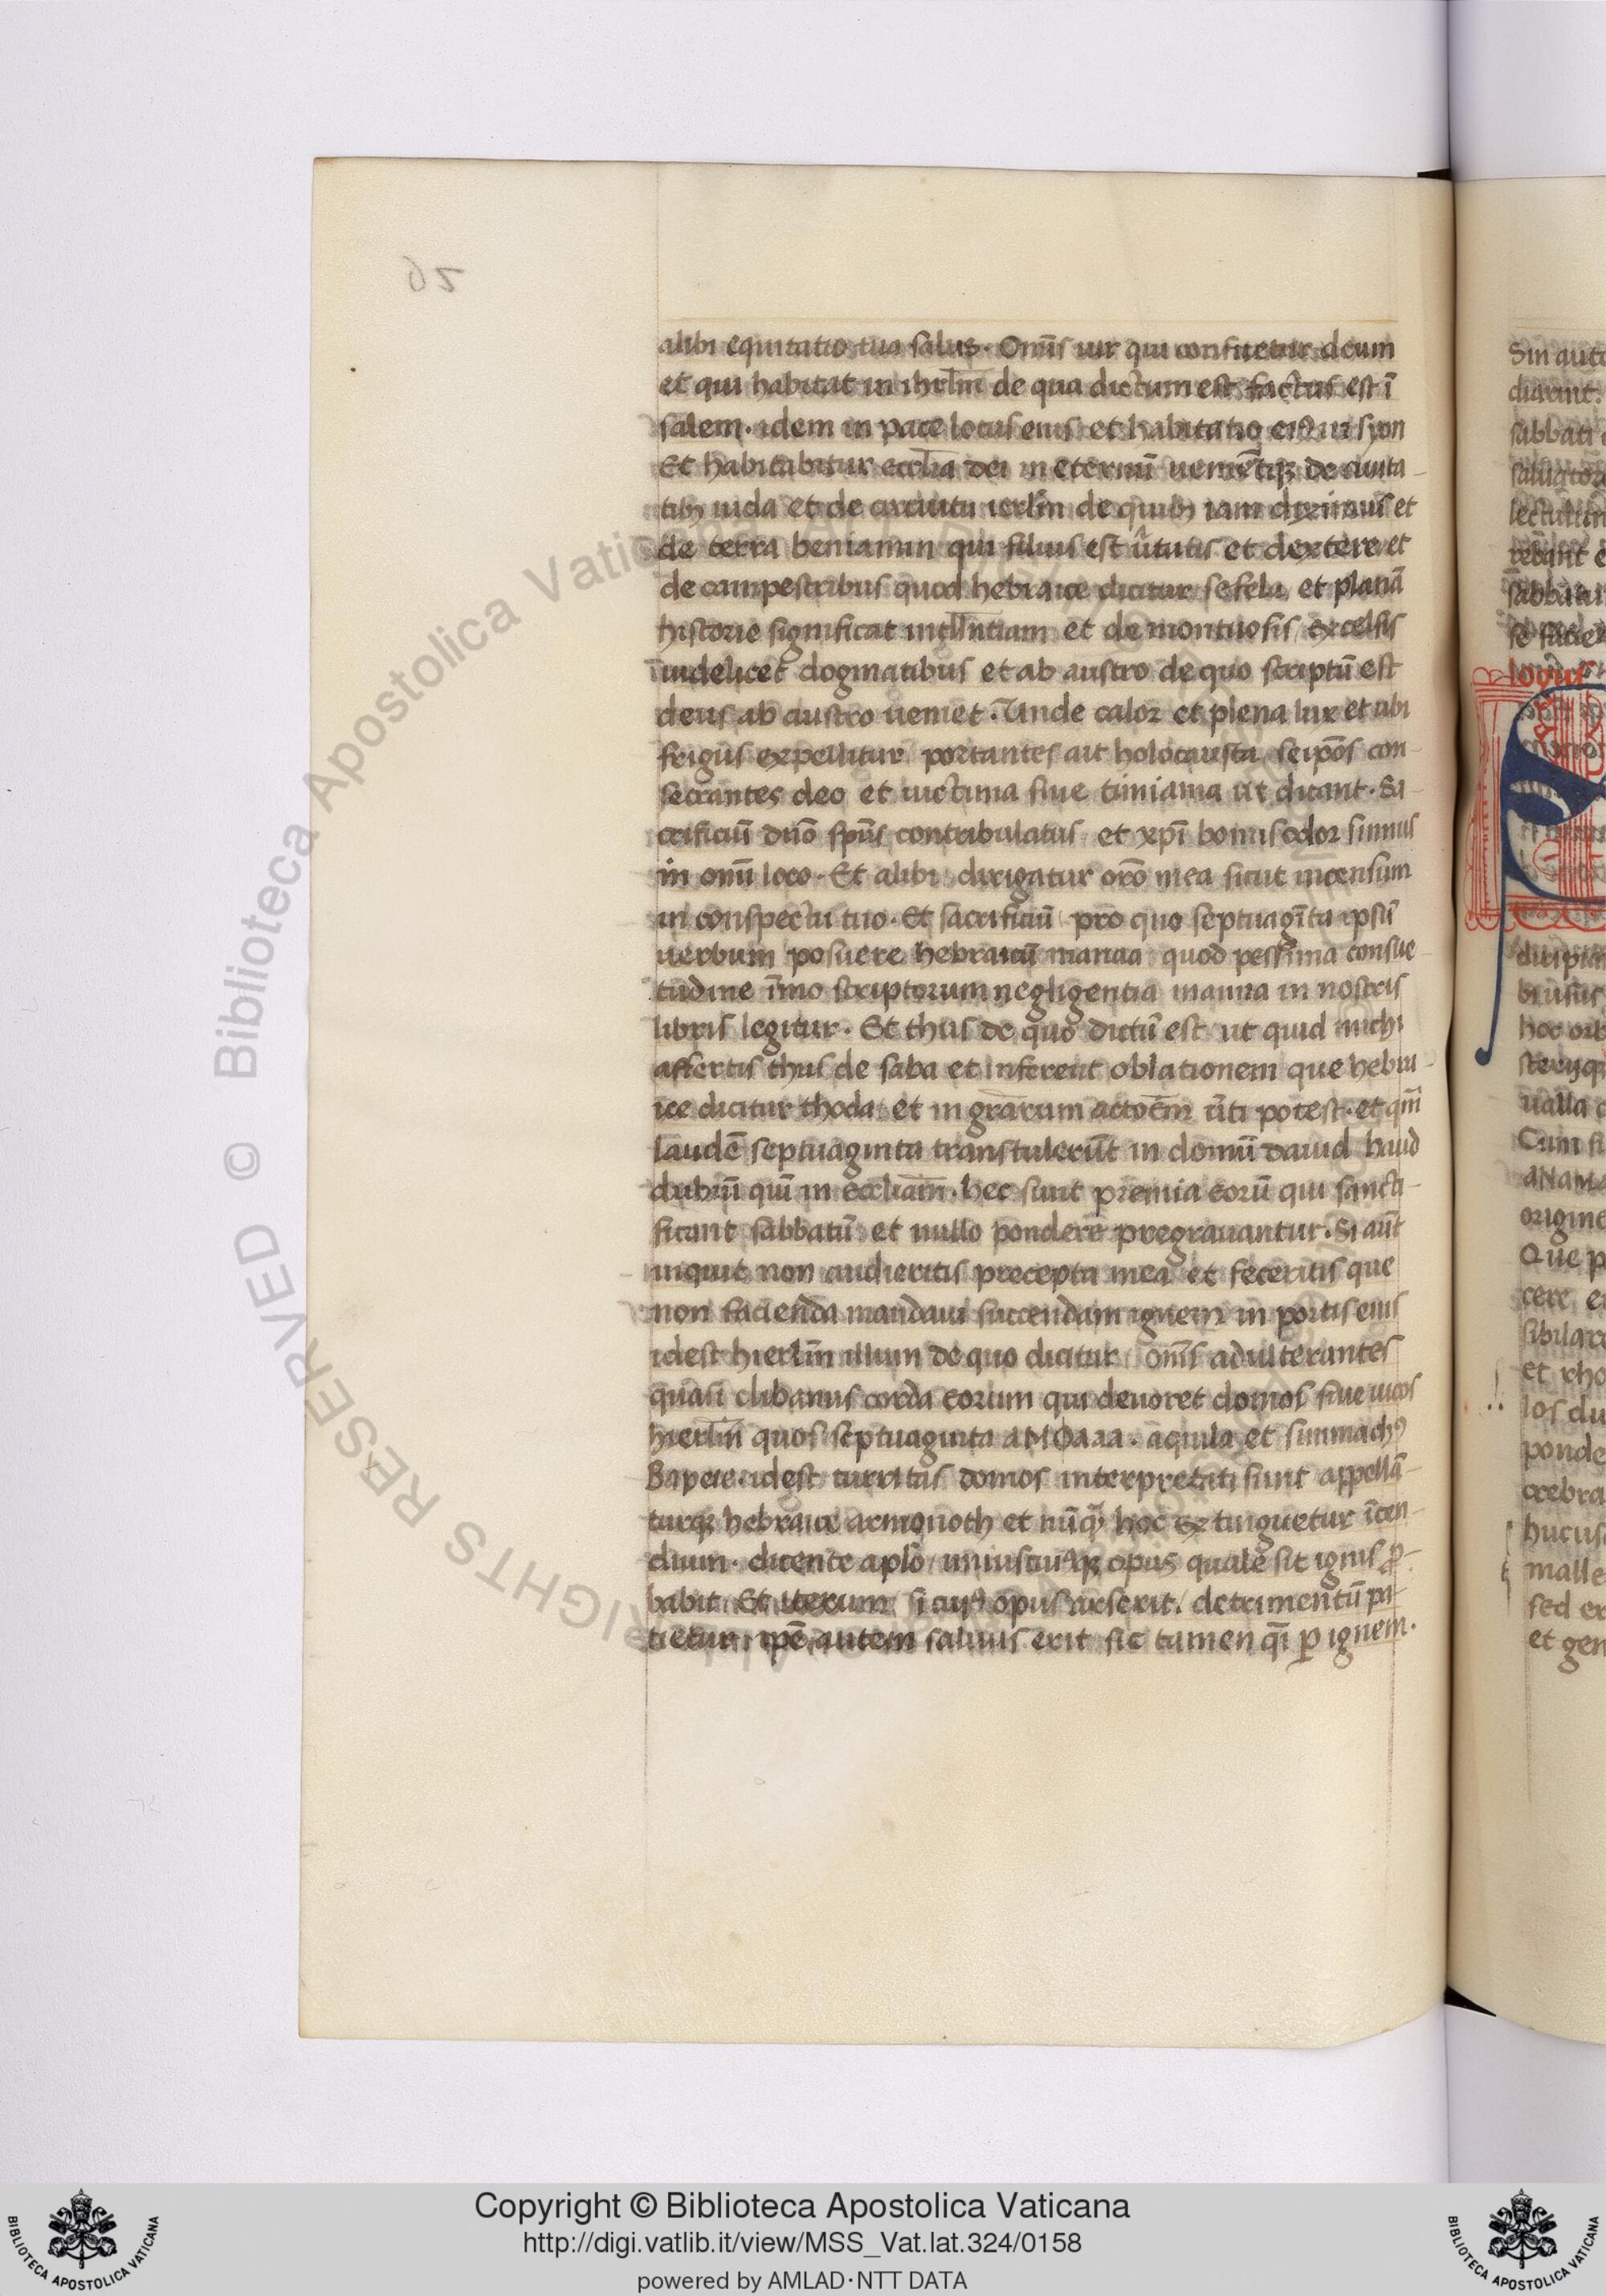 92
alibi equitatio tua salus. Om̅s uir qui confitetur deum
et qui habitat in ihrl̅m de qua dictum est factus est ī
salem. idem in pace locus eius et habitatio eiꝰ in syon
Et habitabitur eccl̅ia dei in eternū ueniētiqꝫ de ciuita-
tibꝫ iuda et de circuitu ierl̅m de quibꝫ iam diximus et
de terra beniamin qui filius est u̅tutis et dextere et
de campestribus quod hebraice dicitur sefela et planā
historie significat intll̅ntiam et de montuosis excelsis
uidelicet dogmatibus et ab austro de quo scriptū est
deus ab austro ueniet. Unde calor et plena lux et ubi
frigus expellitur portantes ait holocausta seip̅os con-
secrantes deo et uictima siue timiama ut dicant. Sa-
crificiū dn̅o sp̅us contribulatus et xp̅i bonus odor sumus
in om̅i loco. Et alibi dirigatur or̅o mea sicut incensum
in conspectu tuo. Et sacrificiū pro quo septuagīta ipsū
uerbum posuere hebraicū manaa quod pessima consue-
tudine īmo scriptorum negligentia manna in nostris
libris legitur. Et thus de quo dictū est ut quid michi
affertis thus de saba et inferent oblationem que hebra-
ice dicitur thoda et in gra̅rum acto̅em u̅ti potest. et qm̅
laudē septuaginta transtulerūt in domū dauid haud
dubiū quī in eccliam̅. hec sunt premia eorū qui sancti-
ficant sabbatū et nullo pondere pregrauantur. Si au̅t
inquit non audieritis precepta mea et feceritis que
non facienda mandaui succendam ignem in portis eius
idest hierl̅m illum de quo dicitur om̅s adulterantes
quasi clibanus corda eorum qui deuoret domos siue uicos
hierl̅m quos septuaginta aMΦaaa. aquila et simmachꝰ
Bapeie. idest turritas domos interpretati sunt appellā-
turqꝫ hebraice armonoth et nūq̅ hoc extinguetur īcen-
dium. dicente aplo̅ uniuscuiꝰqꝫ opus quale sit ignis ꝓ-
babit Et iterum si cuiꝰ opus arserit. detrimentū pa-
tietur ip̅e autem saluus erit sic tamen q̅i ꝑ ignem.
Copyright © Biblioteca Apostolica Vaticana
http://digi.vatlib.it/view/MSS_Vat.lat.324/0158
powered by AMLAD·NTT DATA
BIBLIOTECA APOSTOLICA VATICANA
BIBLIOTECA APOSTOLICA VATICANA